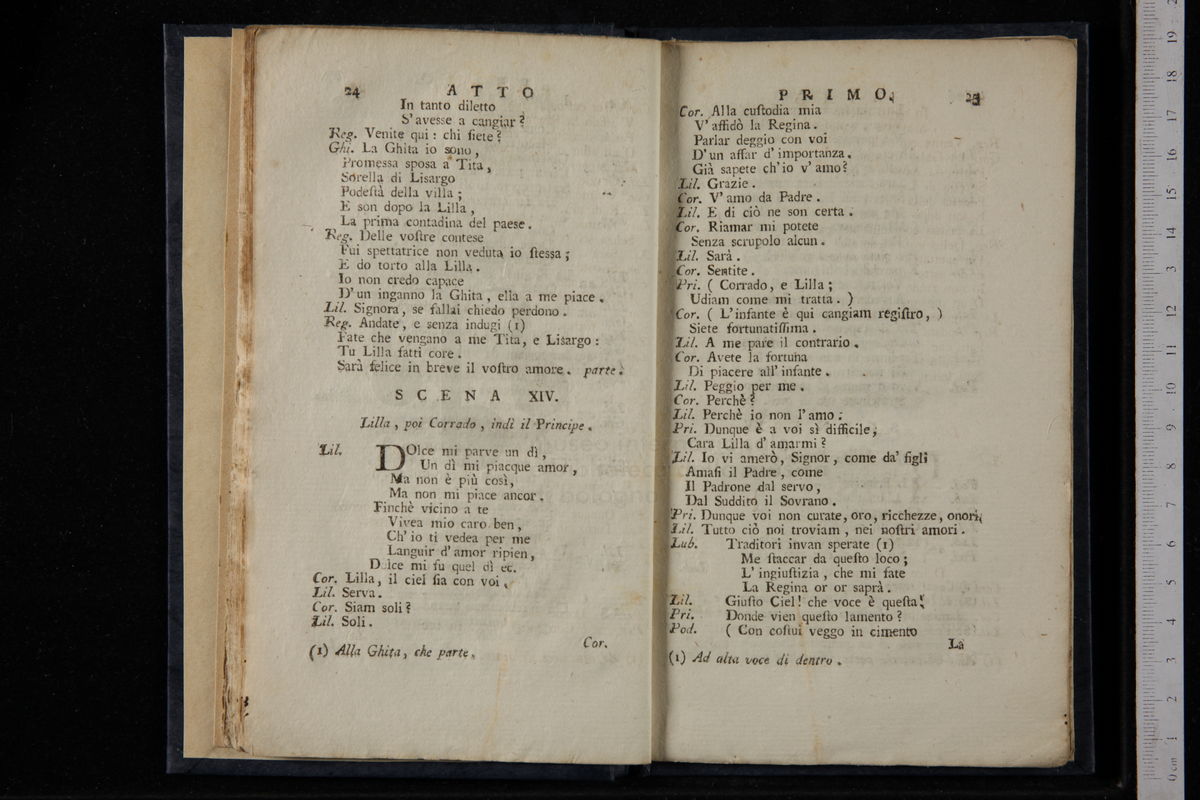 24 ATTO
In tanto diletto
S'avesse a cangiar?
Reg. Venite qui: chi ſiete?
Ghi. La Ghita io sono,
Promessa sposa a Tita,
Sorella di Lisargo
Podeſtà della villa;
E son dopo la Lilla,
La prima contadina del paese.
Reg. Delle voſtre contese
Fui spettatrice non veduta io ſtessa;
E do torto alla Lilla.
Io non credo capace
D'un inganno la Ghita, ella a me piace.
Lil. Signora, se fallai chiedo perdono.
Reg. Andate, e senza indugi (1)
Fate che vengano a me Tita, e Lisargo:
Tu Lilla fatti core.
Sarà felice in breve il voſtro amore. parte.
SCENA XIV.
Lilla, poi Corrado, indi il Principe.
Lil. DOlce mi parve un dì,
Un dì mi piacque amor,
Ma non è più così,
Ma non mi piace ancor.
Finchè vicino a te
Vivea mio caro ben,
Ch'io ti vedea per me
Languir d'amor ripien,
Dolce mi fu quel dì ec.
Cor. Lilla, il ciel ſia con voi.
Lil. Serva.
Cor. Siam soli?
Lil. Soli.
Cor.
(1) Alla Ghita, che parte.
PRIMO. 25
Cor. Alla cuſtodia mia
V'affidò la Regina.
Parlar deggio con voi
D'un affar d'importanza.
Già sapete ch'io v'amo?
Lil. Grazie.
Cor. V'amo da Padre.
Lil. E di ciò ne son certa.
Cor. Riamar mi potete
Senza scrupolo alcun.
Lil. Sarà.
Cor. Sentite.
Pri. (Corrado, e Lilla;
Udiam come mi tratta.)
Cor. (L'infante è qui cangiam regiſtro,)
Siete fortunatiſſima.
Lil. A me pare il contrario.
Cor. Avete la fortuna
Di piacere all'infante.
Lil. Peggio per me.
Cor. Perchè?
Lil. Perchè io non l'amo:
Pri. Dunque è a voi sì difficile,
Cara Lilla d'amarmi?
Lil. Io vi amerò, Signor, come da' figli
Amaſi il Padre, come
Il Padrone dal servo,
Dal Suddito il Sovrano.
Pri. Dunque voi non curate, oro, ricchezze, onori,
Lil. Tutto ciò noi troviam, nei noſtri amori.
Lub. Traditori invan sperate (1)
Me ſtaccar da queſto loco;
L'ingiuſtizia, che mi fate
La Regina or or saprà.
Lil. Giuſto Ciel! che voce è queſta!
Pri. Donde vien queſto lamento?
Pod. (Con coſtui veggo in cimento
La
(1) Ad alta voce di dentro.